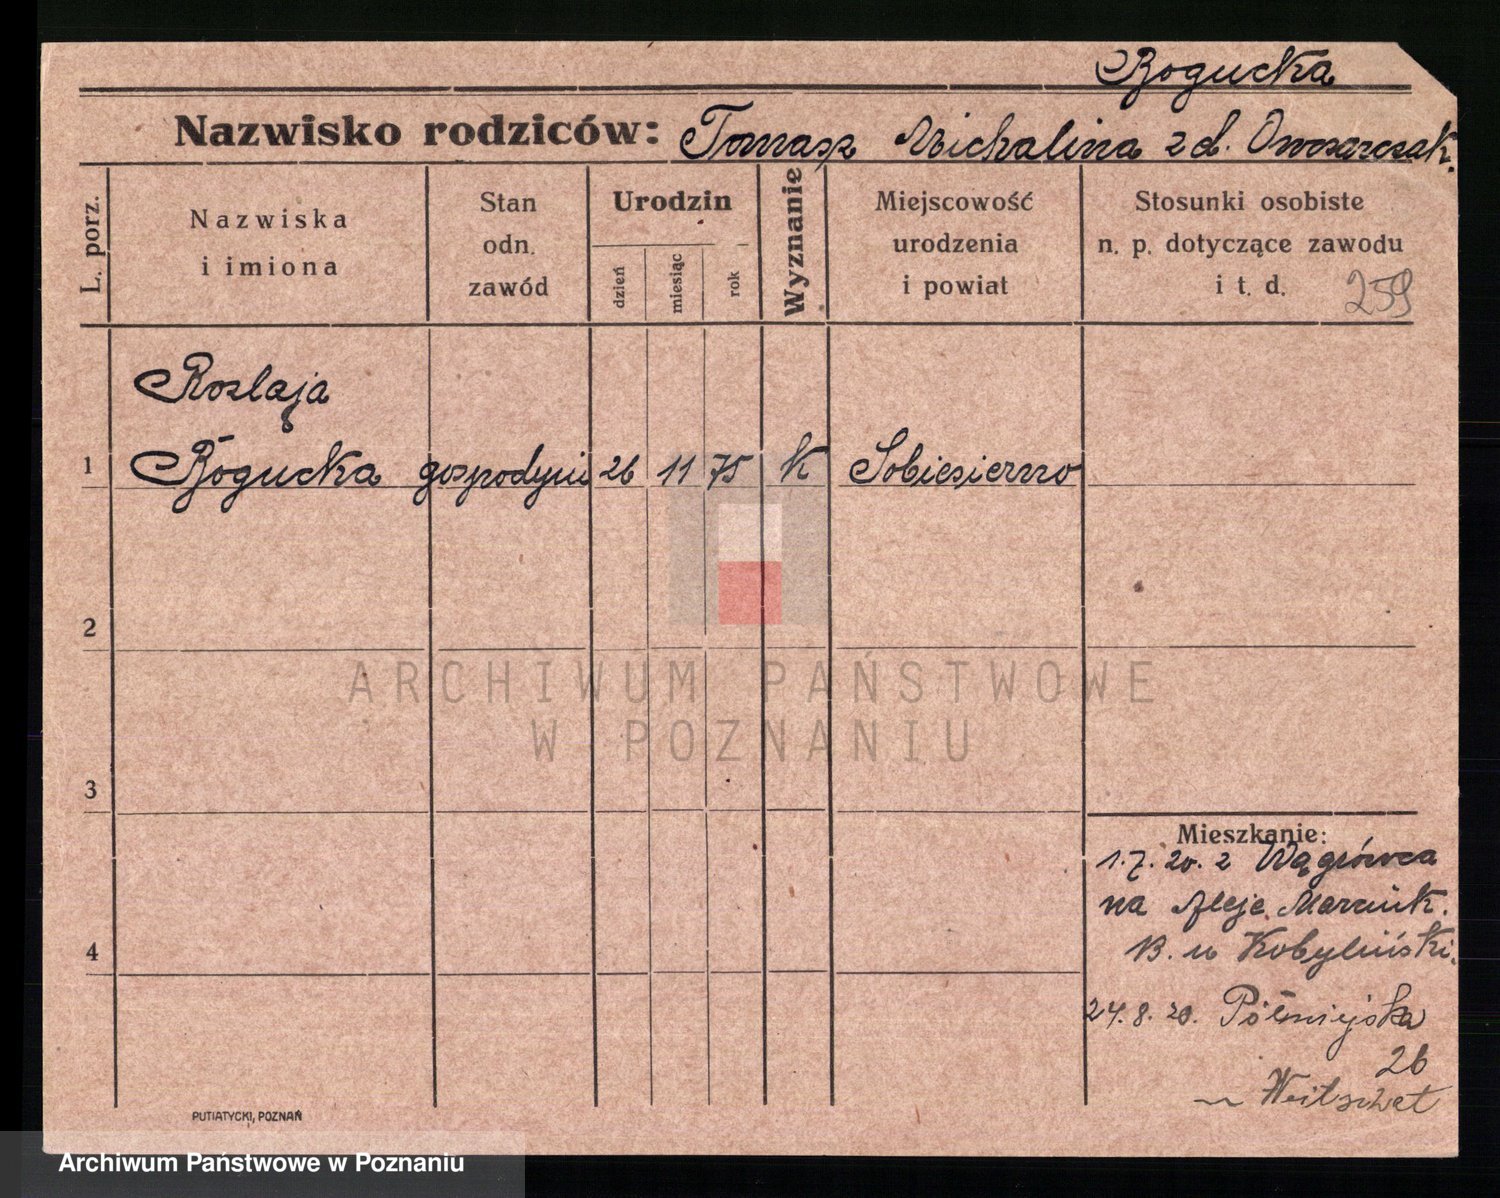 Bogucka
Nazwisko rodziców: Tomasz Michalina z d. Owczarczak.
L. porz.
Nazwiska
i imiona
Stan
odn.
zawód
Urodzin
dzień
miesiąc
rok
Wyznanie
Miejscowość
urodzenia
i powiat
Stosunki osobiste
n. p. dotyczące zawodu
i t. d.
259
Rozlaja
1 Bogucka gospodyni 26 11 75 k Sobiesierno
2
3
4
Mieszkanie:
1.7.20. z Wągrówca
na Aleje Marcink.
B. u Kobyliński.
24.8.20. Półwiejska
26
Weitzwet
PUTIATYCKI, POZNAŃ
ARCHIWUM PAŃSTWOWE
W POZNANIU
Archiwum Państwowe w Poznaniu